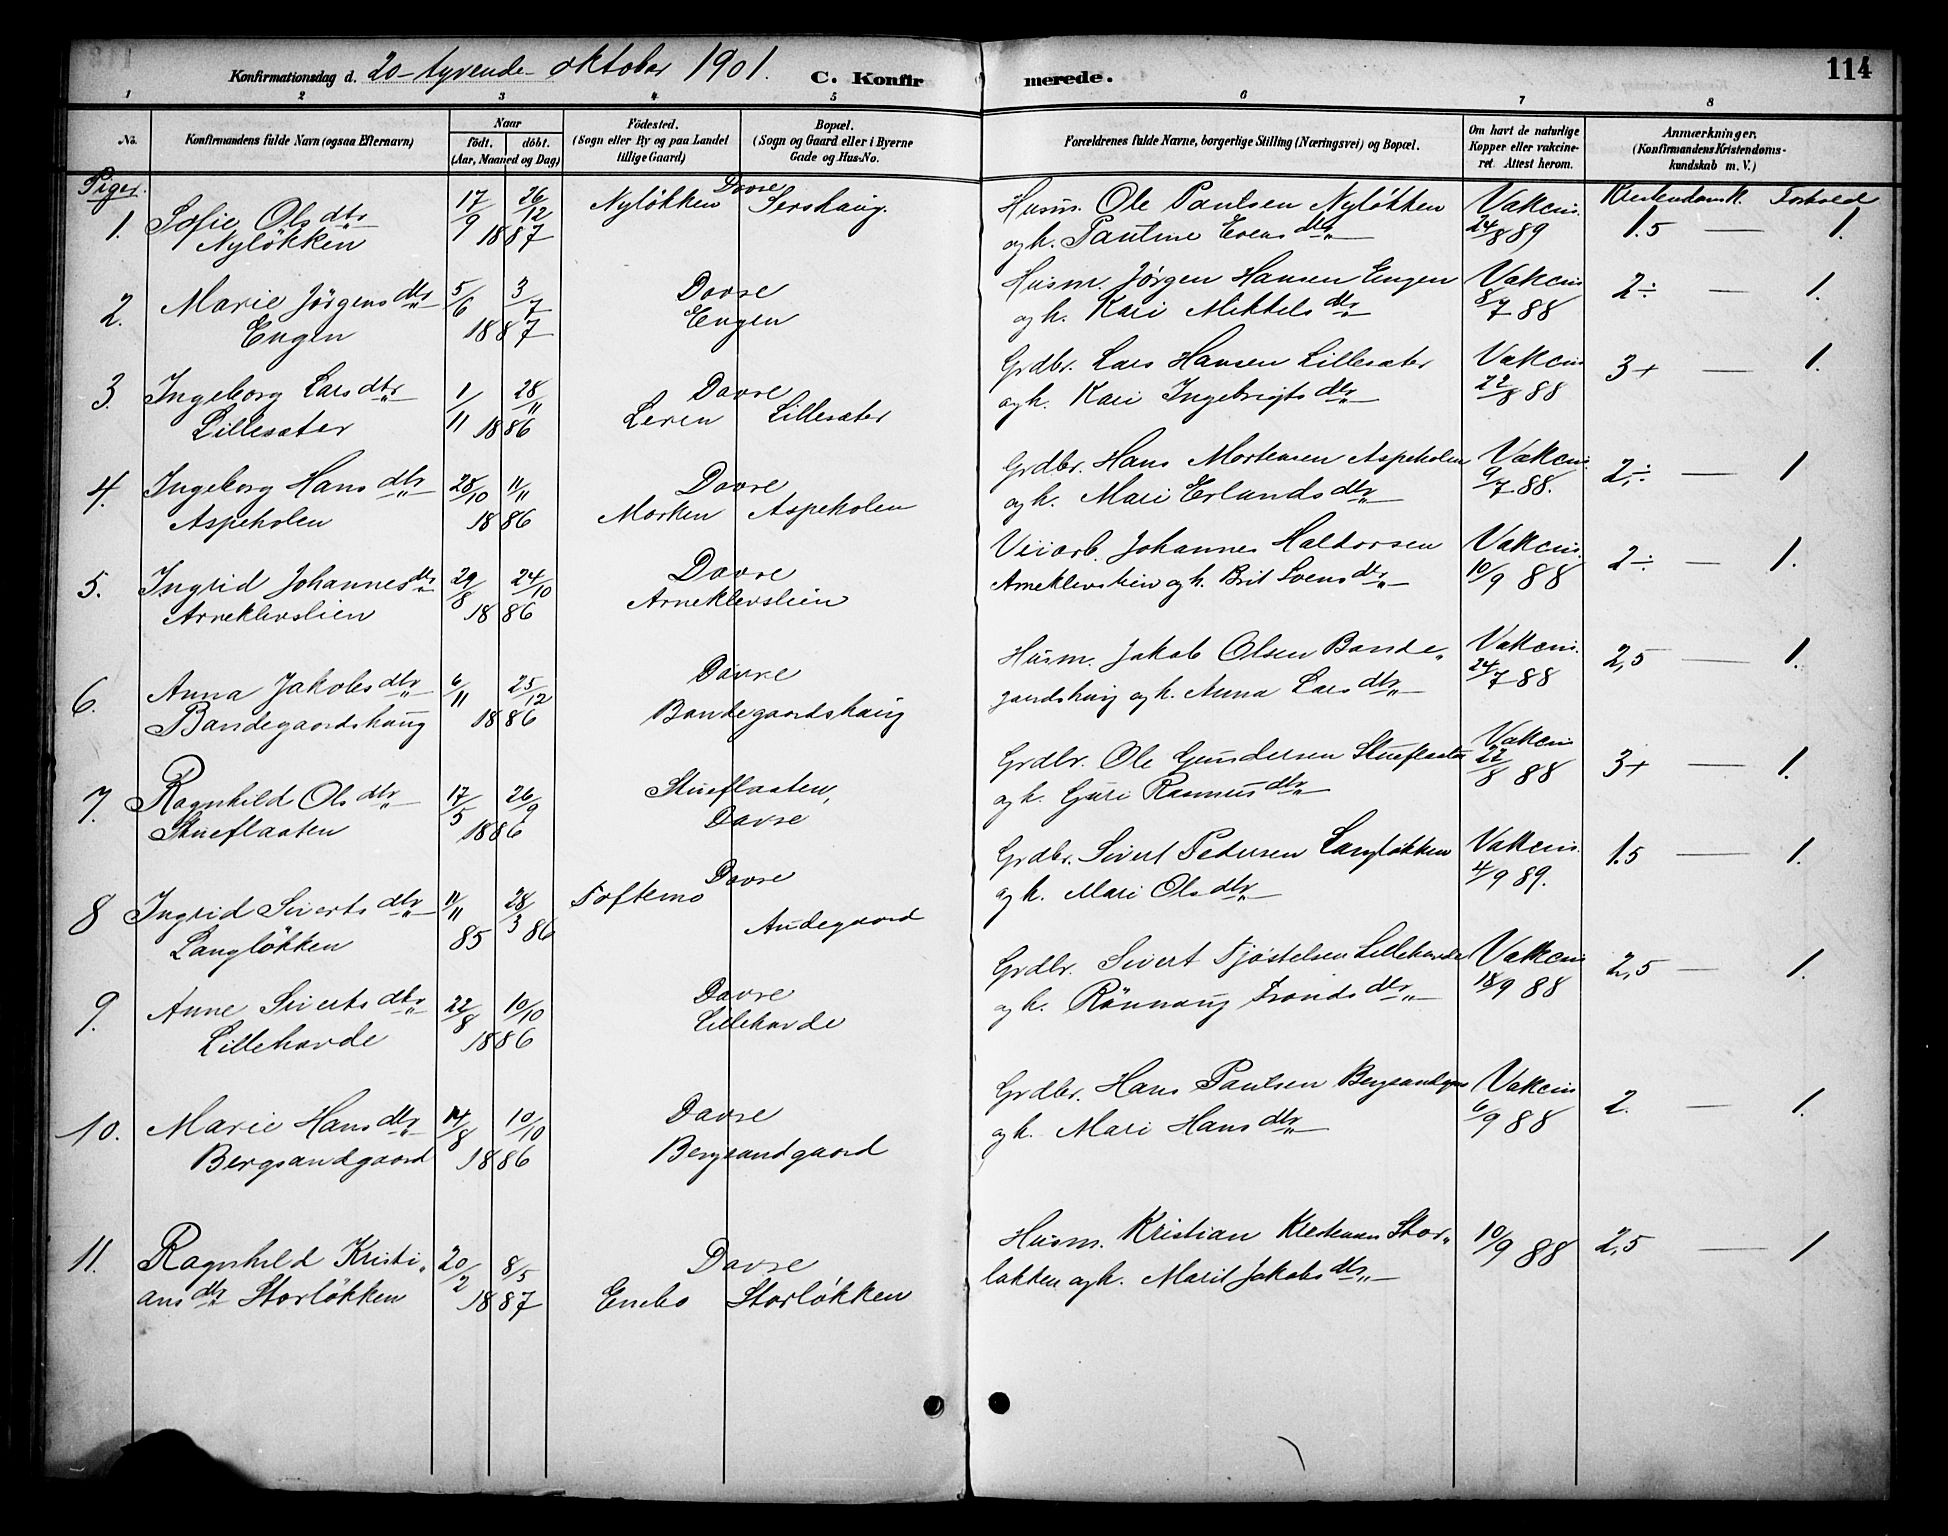 Konfirmationsdag d. 20-tyvende oktober 1901. C. Konfirmerede. 114
1 2 3 4 5 6 7 8
No. Konfirmandens fulde Navn (ogsaa Efternavn) Naar født. døbt. (Aar, Maaned og Dag) Fødested. (Sogn eller By og paa Landet tillige Gaard) Bopæl. (Sogn og Gaard eller i Byerne Gade og Hus-No. Forældrenes fulde Navne, borgerlige Stilling (Næringsvei) og Bopæl. Om havt de naturlige Kopper eller vakcineret. Attest herom. Anmærkninger. (Konfirmandens Kristendomskundskab m. V.)
Piger. Kristendomsk. Forhold
1. Sofie Olsdtr 17/9 26/12 Nyløkken Dovre Sershaug. Husm. Ole Paulsen Nyløkken Vakcin. 1.5 — 1.
Nyløkken 1887 og h. Pauline Evensdtr 24/8 89
2. Marie Jørgensdtr 5/6 3/7 Dovre Husm. Jørgen Hansen Engen Vakcin 2÷ — 1.
Engen 1887 Engen og h. Kari Mikkelsdtr 8/7 88
3. Ingeborg Larsdtr 1/11 28/11 Dovre Grdbr. Lars Hansen Lillesæter Vakcin 3+ — 1.
Lillesæter 1886 Leren Lillesæter og h. Kari Ingebrigtsdtr 22/8 88
4. Ingeborg Hansdtr 28/10 11/11 Dovre Grdbr. Hans Mortensen Aspeholen Vakcin. 2÷ — 1
Aspeholen 1886 Morken Aspeholen og h. Mari Erlandsdtr 9/7 88.
5. Ingrid Johannesdtr 29/8 24/10 Dovre Veiarb. Johannes Haldorsen Vakcin. 2÷ — 1.
Arneklevslien 1886 Arneklevslien Arneklevslien og h. Brit Svensdtr 10/9 88
6. Anna Jakobsdtr 6/11 25/12 Dovre Husm. Jakob Olsen Bande„ Vakcin. 2,5 — 1.
Bandegaardshaug 1886 Bandegaardshaug gaardshaug og h. Anna Larsdtr 24/7 88
7. Ragnhild Olsdtr 17/5 26/9 Stueflaaten, Grdbr. Ole Gundersen Stueflaaten Vakcin 3+ — 1.
Stueflaaten 1886 Dovre og h. Guri Rasmusdtr 22/8 88
8 Ingrid Sivertsdtr 11/11 28/3 Toftemo Dovre Grdbr. Sivert Pedersen Langløkken Vakcin. 1.5 — 1.
Langløkken 85 86 Audegaard og h. Mari Olsdtr 4/9 89.
9. Anne Sivertsdtr 22/8 10/10 Dovre Grdbr. Sivert Tjøstelsen Lillehovde Vakcin 2,5 — 1.
Lillehovde 1886 Lillehovde og h. Rønnaug Trondsdtr 18/9 88
10. Marie Hansdtr 14/8 10/10 Dovre Grdbr. Hans Paulsen Bergsandgaard Vakcin 2. — 1.
Bergsandgaard 1886 Bergsandgaard og h. Mari Hansdtr 6/9 88
11. Ragnhild Kristi„ 20/2 8/5 Dovre Husm. Kristian Kristensen Stor„ 10/9 88 2,5 — 1
ansdtr Storløkken 1887 Enebo Storløkken løkken og h. Marit Jakobsdtr